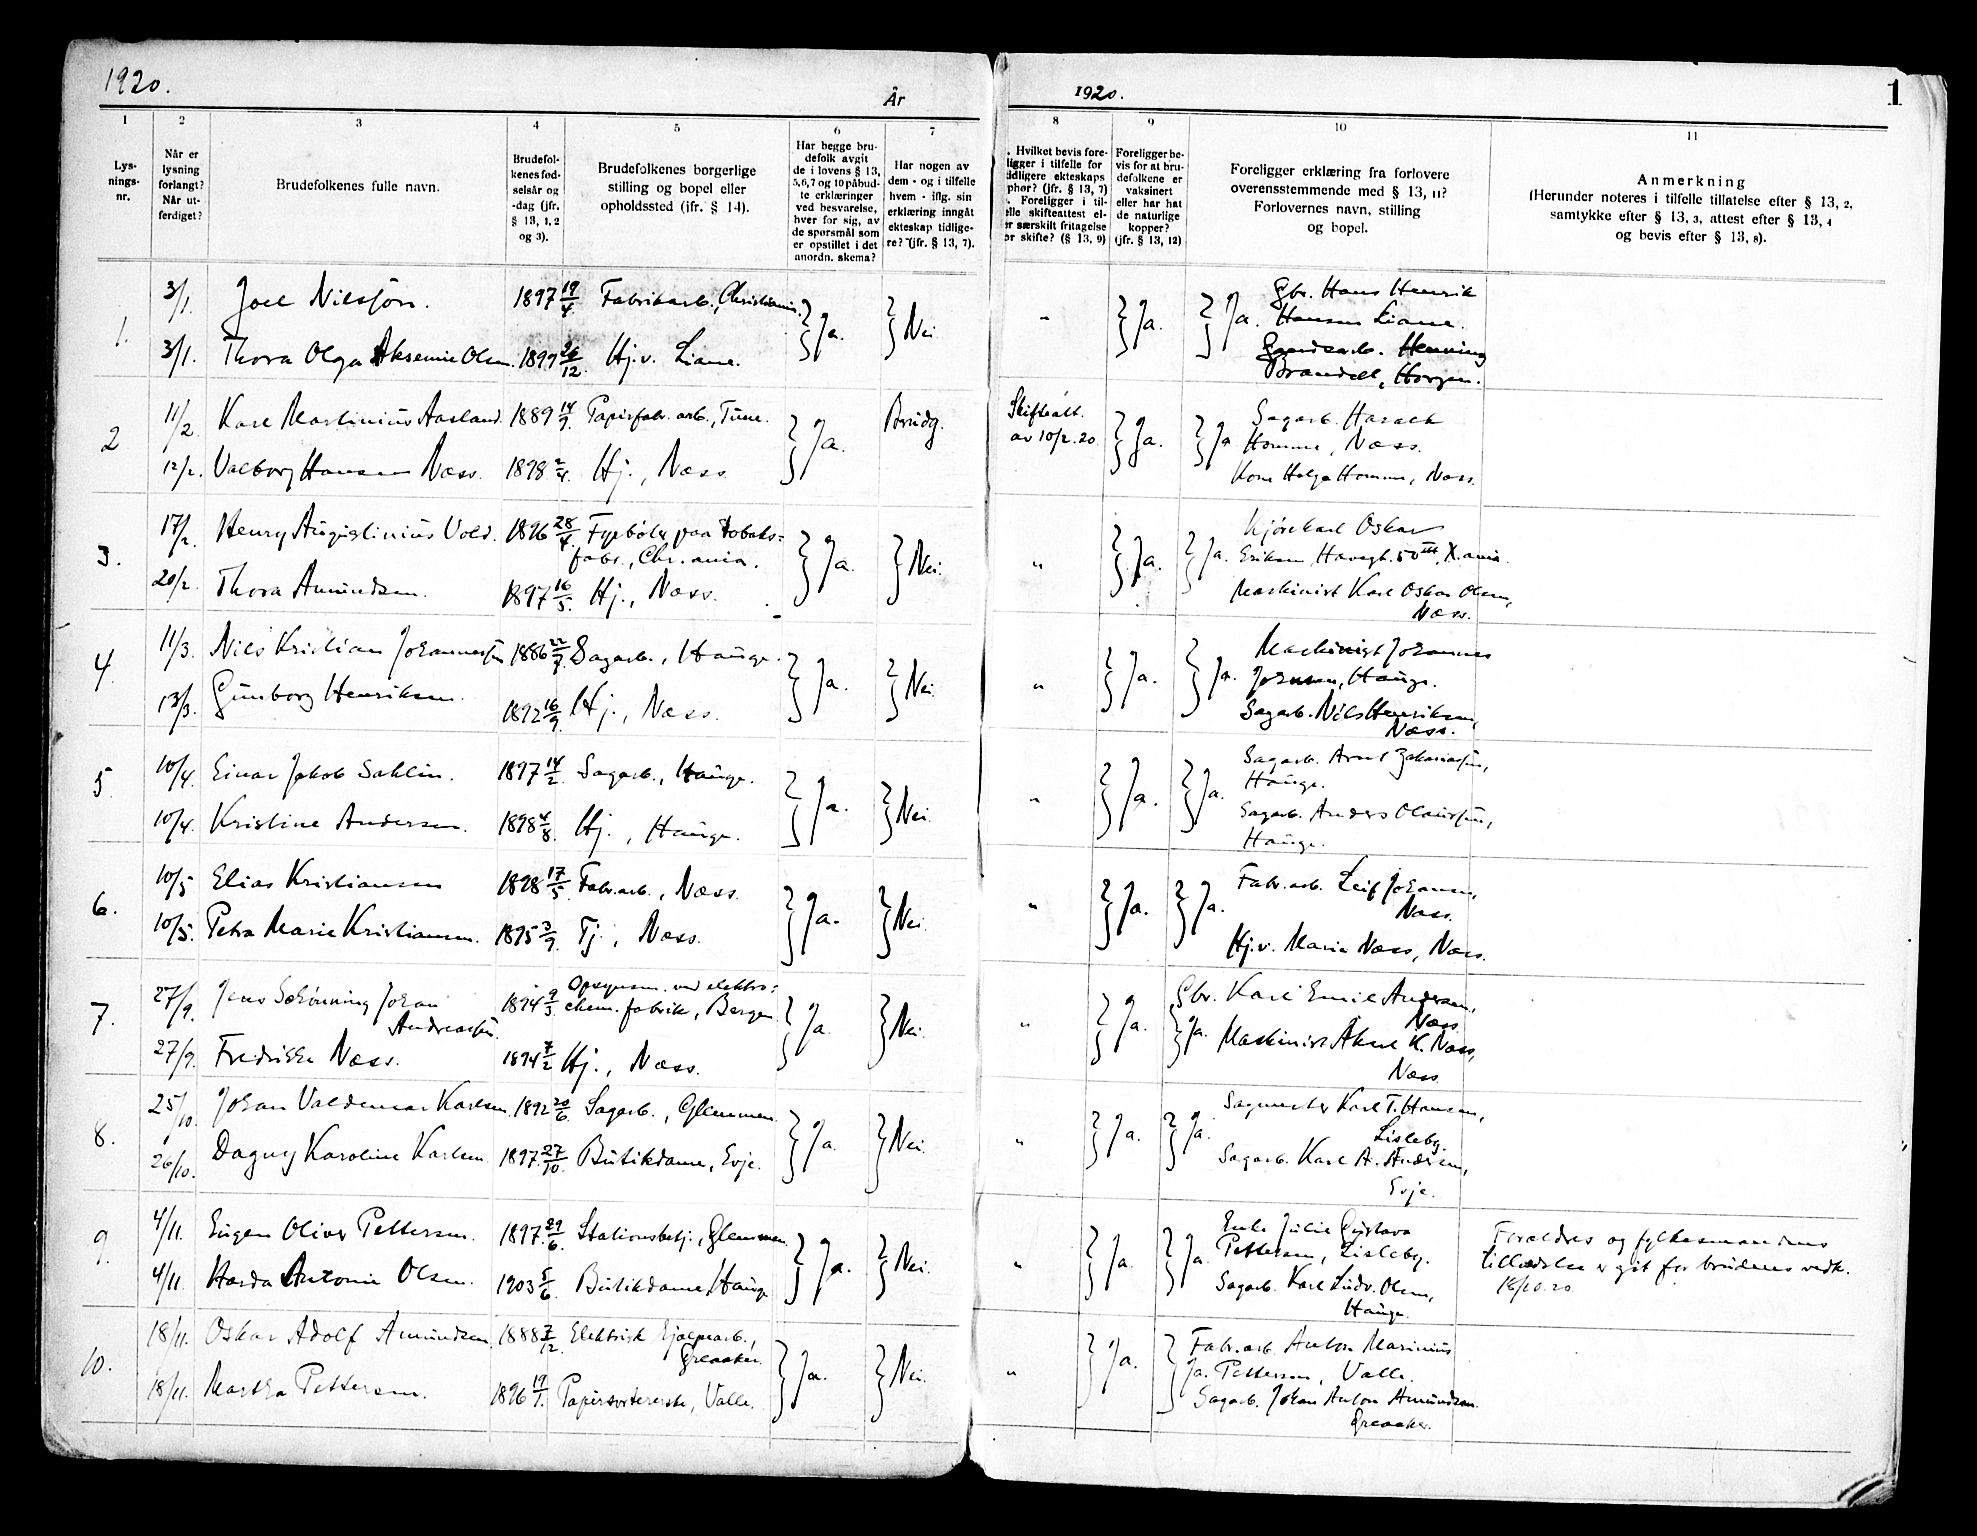 1920.
År
1920.
1
1
2
3
4
5
6
7
8
9
10
11
Lys-
nings-
nr.
Når er
lysning
forlangt?
Når ut-
ferdiget?
Brudefolkenes fulle navn.
Brudefol-
kenes fød-
selsår og
-dag (jfr.
§ 13, 1, 2
og 3).
Brudefolkenes borgerlige
stilling og bopel eller
opholdssted (jfr. § 14).
Har begge bru-
defolk avgit
de i lovens § 13,
5,6,7 og 10 påbud-
te erklæringer
ved besvarelse,
hver for sig, av
de spørsmål som
er opstillet i det
anordn. skema?
Har nogen av
dem - og i tilfelle
hvem - iflg. sin
erklæring inngått
ekteskap tidlige-
re? (jfr. § 13, 7).
. Hvilket bevis fore-
ligger i tilfelle for
idligere ekteskaps
phør? (jfr. § 13, 7)
. Foreligger i til-
elle skifteattest el-
er særskilt fritagelse
or skifte? (§ 13, 9)
Foreligger be-
vis for at bru-
defolkene er
vaksinert
eller har hat
de naturlige
kopper?
(jfr. § 13, 12)
Foreligger erklæring fra forlovere
overensstemmende med § 13, 11?
Forlovernes navn, stilling
og bopel.
Anmerkning
(Herunder noteres i tilfelle tillatelse efter § 13, 2,
samtykke efter § 13, 3, attest efter § 13, 4
og bevis efter § 13, 8).
1. 3/1. Joel Nilssön. 1897 19/4. Fabrikarb., Christiania. Ja. Nei. " Ja. Ja. Gbr. Hans Henrik
Hansen Liane.
3/1. Thora Olga Aksemine Olsen. 1899 26/12. Hj.v. Liane. Henning
Brandell, Horgen.
2 11/2. Karl Martinius Aasland. 1889 14/9. Papirfabr. arb., Tune. Ja. Brudg. Skifteatt.
av 10/2.20. Ja. Ja Sagarb. Harald
Homme, Næss.
12/2. Valborg Hansen Næss. 1898 2/4. Hj., Næss. Kone Helga Homme, Næss.
3. 17/2. Henry Augustinius Vold. 1896 28/4. Fyrböter paa tobaks-
fabr., Chr.ania. Ja. Nei. " Ja. Ja. Kjörekarl Oskar
Eriksen, Havegt. 50 III, X.ania.
20/2. Thora Amundsen. 1897 16/5. Hj., Næss. Maskinist Karl Oskar Olsen,
Næss.
4. 11/3. Nils Kristian Johannessen 1886 22/7. Sagarb., Hauge. Ja. Nei. " Ja. Ja. Maskinist Johannes
Jensen, Hauge.
13/3. Gunborg Henriksen. 1892 16/9. Hj., Næss. Sagarb. Nils Henriksen,
Næss.
5 10/4. Einar Jakob Sahlin. 1897 14/2. Sagarb., Hauge. Ja. Nei. " Ja. Ja. Sagarb. Arnt Zakariassen,
Hauge.
10/4. Kristine Andersen. 1898 4/8. Hj., Hauge. Sagarb. Anders Olaussen,
Hauge.
6. 10/5 Elias Kristiansen 1898 17/5. Fabr.arb., Næss. Ja. Nei. " Ja. Ja. Fabr.arb. Leif Johansen,
Næss.
10/5. Petra Marie Kristiansen. 1895 3/9. Tj., Næss. Hj.v. Maria Næss, Næss.
7. 27/9. Jens Schönning Johan
Andreassen. 1894 9/3. Opsynsm. ved elektro-
chem. fabrik, Bergen. Ja Nei. " Ja. Ja. Gbr. Karl Emil Andersen,
Næss.
27/9. Fredrikke Næss. 1894 7/2 Hj., Næss. Maskinist Aksel K. Næss,
Næss.
8. 25/10. Johan Valdemar Karlsen. 1892 20/6. Sagarb., Glemmen. Ja Nei. " Ja. Ja. Sagmester Karl T. Hansen,
Lisleby.
26/10. Dagny Karoline Karlsen 1897. 27/10. Butikdame, Evje. Sagarb. Karl A. Andersen,
Evje.
9. 4/11. Eugen Oliver Pettersen. 1897. 29/6. Stationsbetj., Glemmen. Ja. Nei. " Ja. Ja. Enke Julie Gustava
Pettersen, Lisleby. Foreldres og fylkesmandens
tilladelse er git for brudens vedk.
16/10.20.
4/11. Harda Antonie Olsen. 1903 5/6. Butikdame, Hauge Sagarb. Karl Ludv. Olsen,
Hauge.
10. 18/11. Oskar Adolf Amundsen. 1888 7/12. Elektrisk hjælpearb.,
Greaaker. Ja. Nei. " Ja. Ja. Fabr.arb. Anton Marinius
Pettersen, Valle.
18/11. Martha Pettersen. 1896 19/1. Papirsortererske, Valle. Sagarb. Johan Anton Amundsen.
Greaaker.